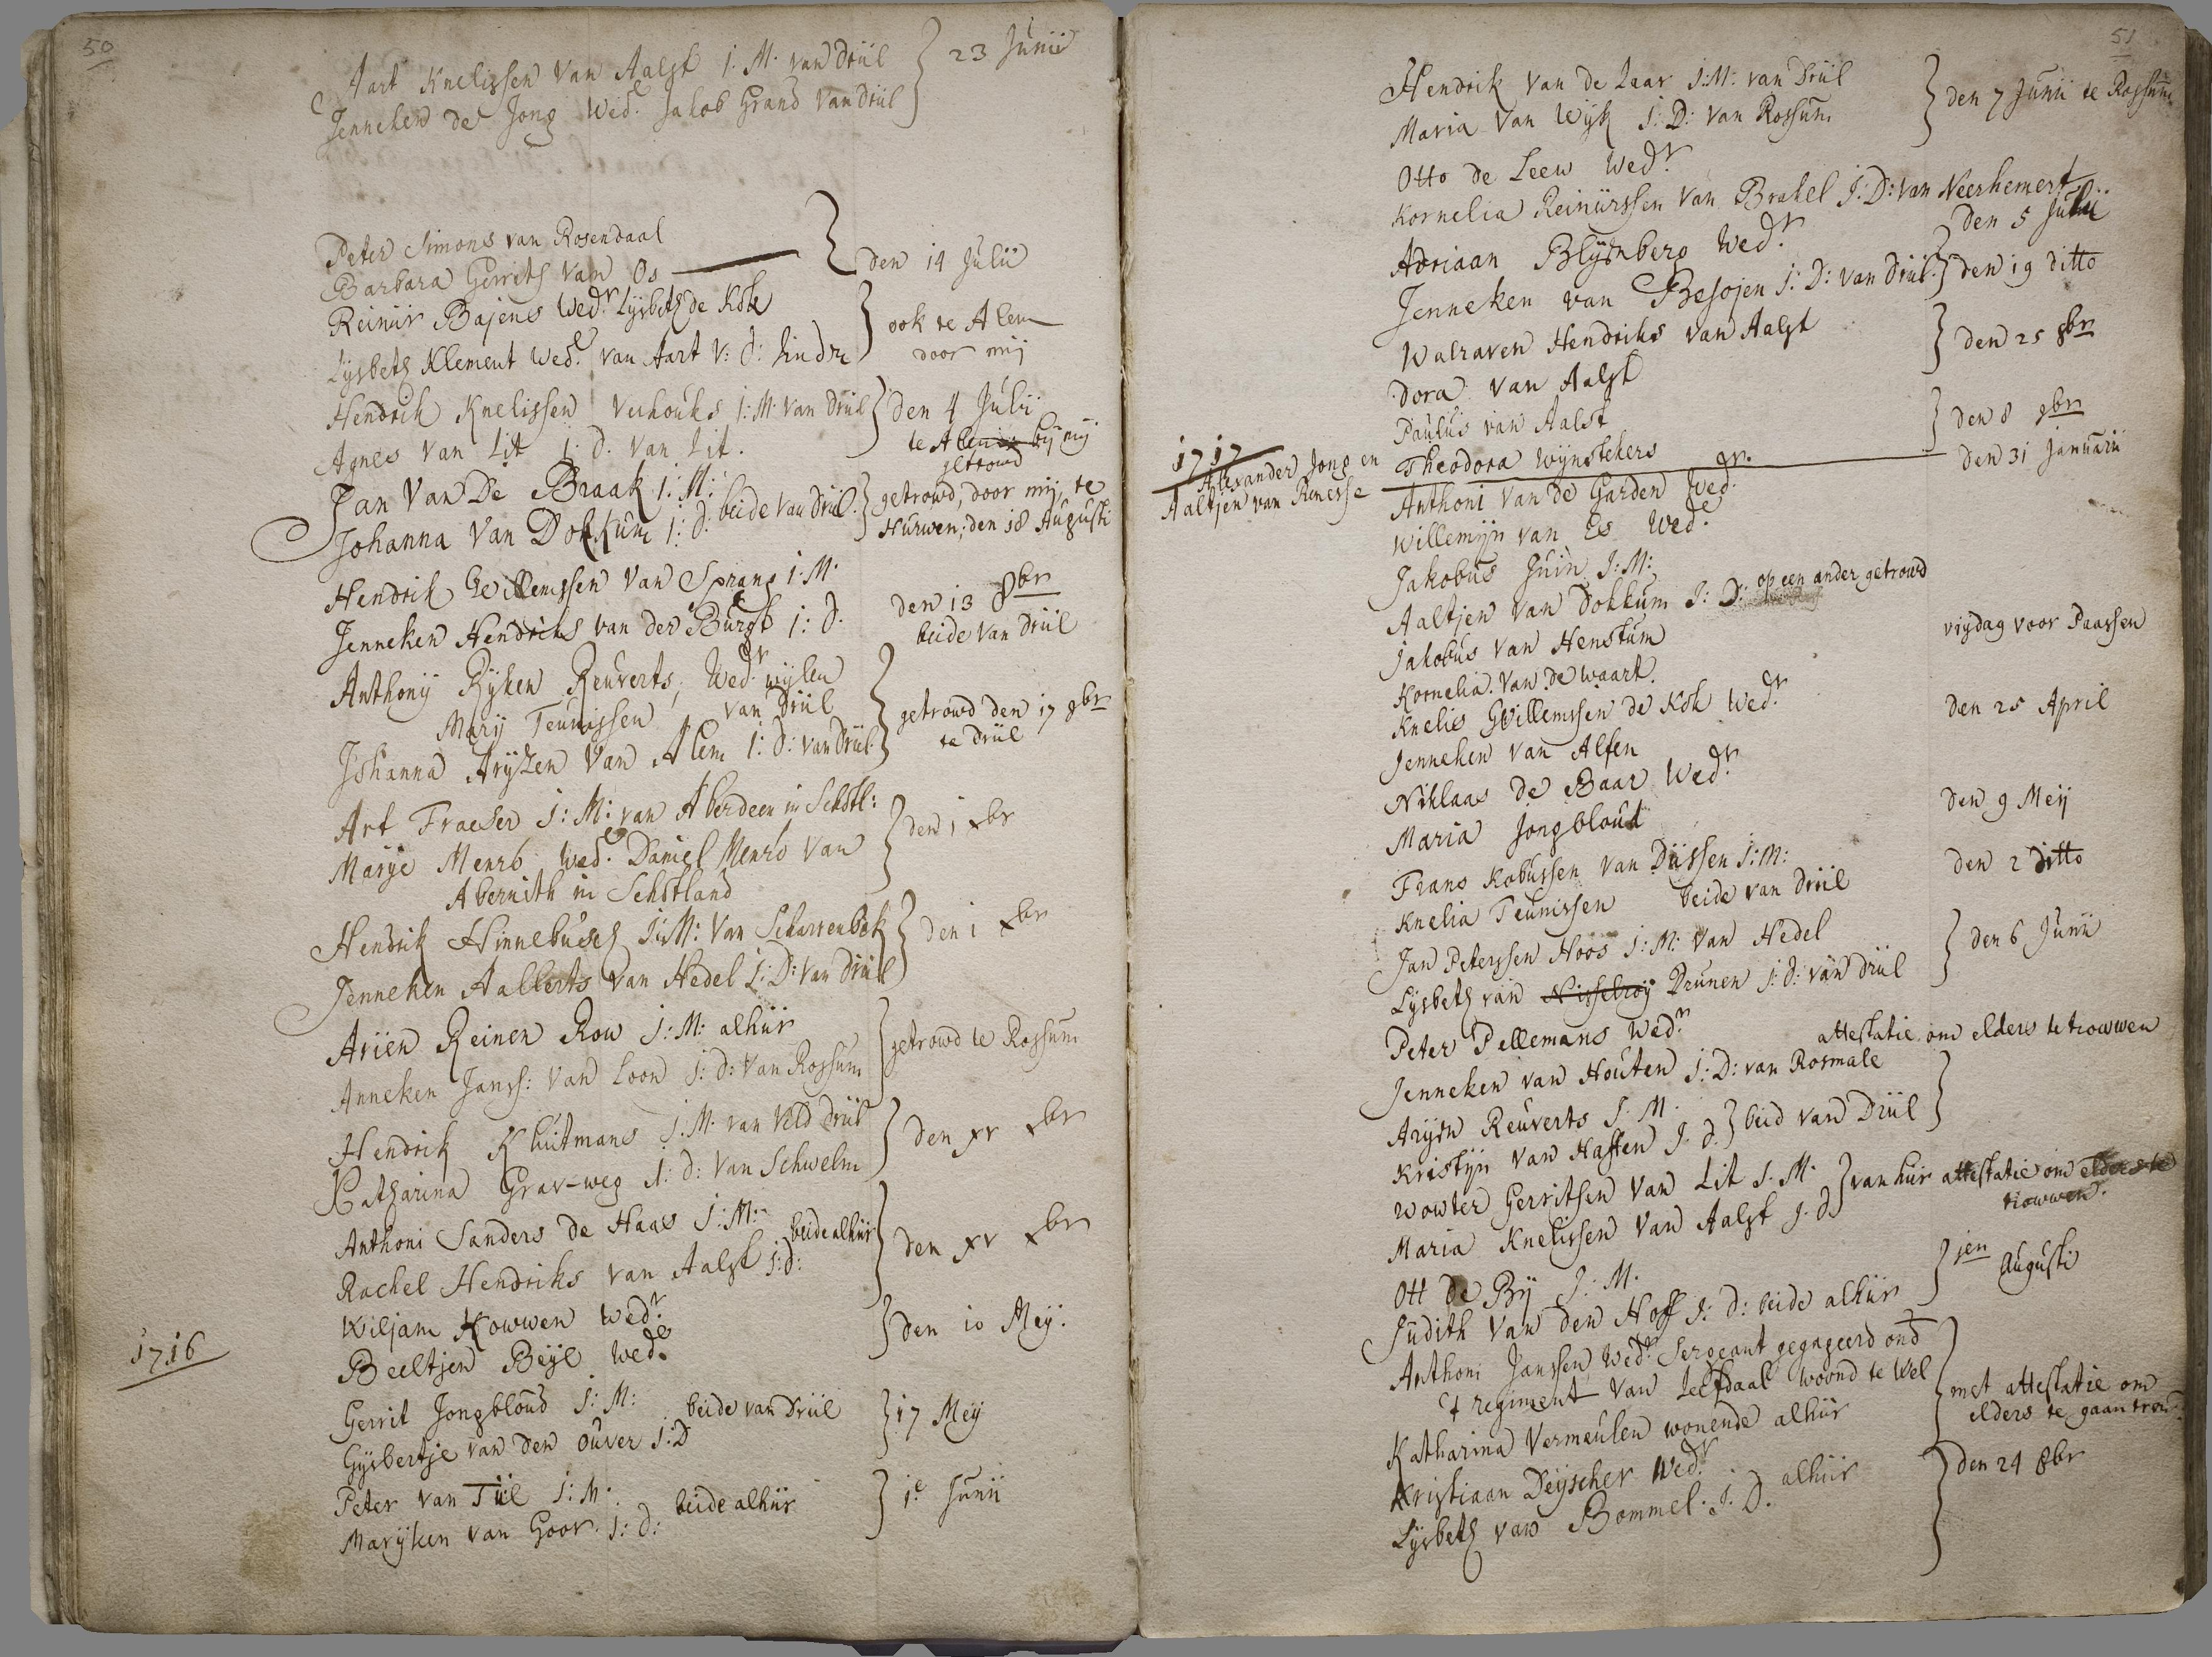 50
Aart Knelissen van Aalst j: M. van Driil
Jenneken de Jong Wed.e Jakob Grand van Driil } 23 Junii
Peter Simons van Rosendaal
Barbara Gerrits van Os } den 14 Julii
Reinier Bajens Wed.r Lysbeth de Kok
Lysbeth Klement Wed.e van Aart v: d: Linden } ook te Alem
door mij
Hendrik Knelissen Verhouks j: M. van Driil
Agnes van Lit j: D. van Lit. } den 4 Julii
te Alem bij mij
getrowd
Jan van De Braak j: M:
Johanna van Dokkum j: d: beide van Driil. } getrowd, door mij, te
Hurwen, den 18 Augusti
Hendrik Willemssen van Sprang j: M.
Jenneken Hendriks van der Burgt j: d. den 13 8br
beide van Driil
Anthonij Ryken Reuverts, Wed.r wylen
Mary Teunissen van Driil
Johanna Aryzen van Alem j: d: van Driil. } getrowd den 17 9br
te Driil
Art Fraeser j: M: van Aberdeen in Schotl:
Marye Menro Wed.e Daniel Menro van
Abernith in Schotland } den 1 xbr
Hendrik Hinnebusch j: M: van Scharrenbek
Jenneken Aalberts van Hedel j: D: van Driil } den 1 xbr
Arien Reinen Row j: M: alhiir
Anneken Janss: van Loon j: d: van Rossum } getrowd te Rossum
Hendrik Kluitmans j: M. van Veld Driil
Catharina Grav-weg j: d: van Schwelm } den xv xbr
Anthoni Sanders de Haas j: M:
Rachel Hendriks van Aalst j: d: beide alhiir } den xv xbr
1716
Wiljam Kowwen Wed.r
Beeltjen Beije Wed.e } den 10 Meij.
Gerrit Jongbloud j: M:
Gysbertje van den Ouver j: D beide van Driil } 17 Mey
Peter van Tiil j: M.
Maryken van Goor. j: d: beide alhiir } 1.e Junii
51
Hendrik van de Laar j: M: van Driil
Maria van Wijk j: D: van Rossum } den 7 Junii te Rossum
Otto de Leew Wed.r
Kornelia Reinierssen van Brakel j: D: van Neerhemert
den 5 Julii
Adriaan Blyenberg Wed.r
Jenneken van Besojen j: D: van Driil. } den 19 ditto
Walraven Hendriks van Aalst
Dora van Aalst } den 25 8br
Paulus van Aalst
Theodora Wynstekers } den 8 9br
1717
Alexander Jong en
Aaltjen van Renesse
Anthoni van de Garden Wed.r den 31 Januarii
Willemijn van Es Wed.e
Jakobus Juin j: M:
Aaltjen van Dokkum j: D: op een ander getrowd
Jakobus van Henstum
Kornelia van de Waart. vrijdag voor Paassen
Knelis Gwillemssen de Kok Wed.r
Jenneken van Alfen den 25 April
Niklaas de Baar Wed.r
Maria Jongbloud den 9 Meij
Frans Kobussen van Diissen j: M:
Knelia Teunissen beide van Driil den 2 ditto
Jan Peterssen Hoos j: M: van Hedel
Lysbeth van Nisselroij Drunen j: d: van Driil } den 6 Junii
Peter Pellemans Wed.r
Jenneken van Houten j: D: van Rosmale attestatie om elders te trowwen
Aryen Reuverts j. M.
Kristijn van Haften j. d. } beid van Driil
Wowter Gerritsen van Lit j. M.
Maria Knelissen van Aalst j. d } van hiir attestatie om elders te
trowwen.
Ott de By j: M.
Judith van den Hoff j: d: beide alhiir } jen Augusti
Anthoni Janssen Wed.r Sergeant gegageerd ond
't regiment van Leefdaal woond te Wel
Katharina Vermeulen wonende alhiir } met attestatie om
elders te gaan trow
Kristiaan Deyscher Wed.r
Lysbeth van Bommel. j. D. alhiir } den 24 8br